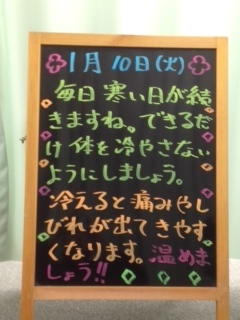 1月10日(火)
毎日寒い日が続
きますね。できるだ
け体を冷やさない
ようにしましょう。
冷えると痛みやし
びれが出てきやす
くなります。温めま
しょう!!